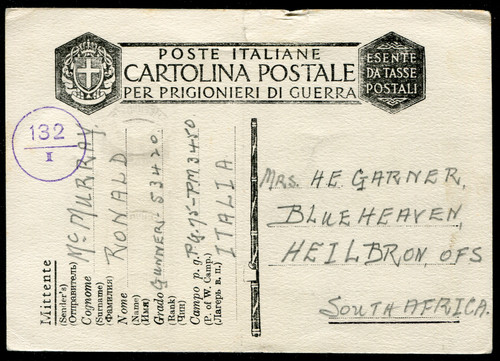 POSTE ITALIANE
CARTOLINA POSTALE
PER PRIGIONIERI DI GUERRA
ESENTE
DA TASSE
POSTALI
132
I
Mittente
(Sender's)
(Отправитель)
Cognome Mc MURRAY
(Surname)
(Фамилия)
Nome RONALD
(Name)
(Имя)
Grado GUNNER - 53420)
(Rank)
(Чин)
Campo p. g. P.G. 75 - P.M. 3450
(P. of W. Camp.)
(Лагерь в. п.) ITALIA
MRS. H E GARNER,
BLUEHEAVEN,
HEILBRON, OFS
SOUTH AFRICA.